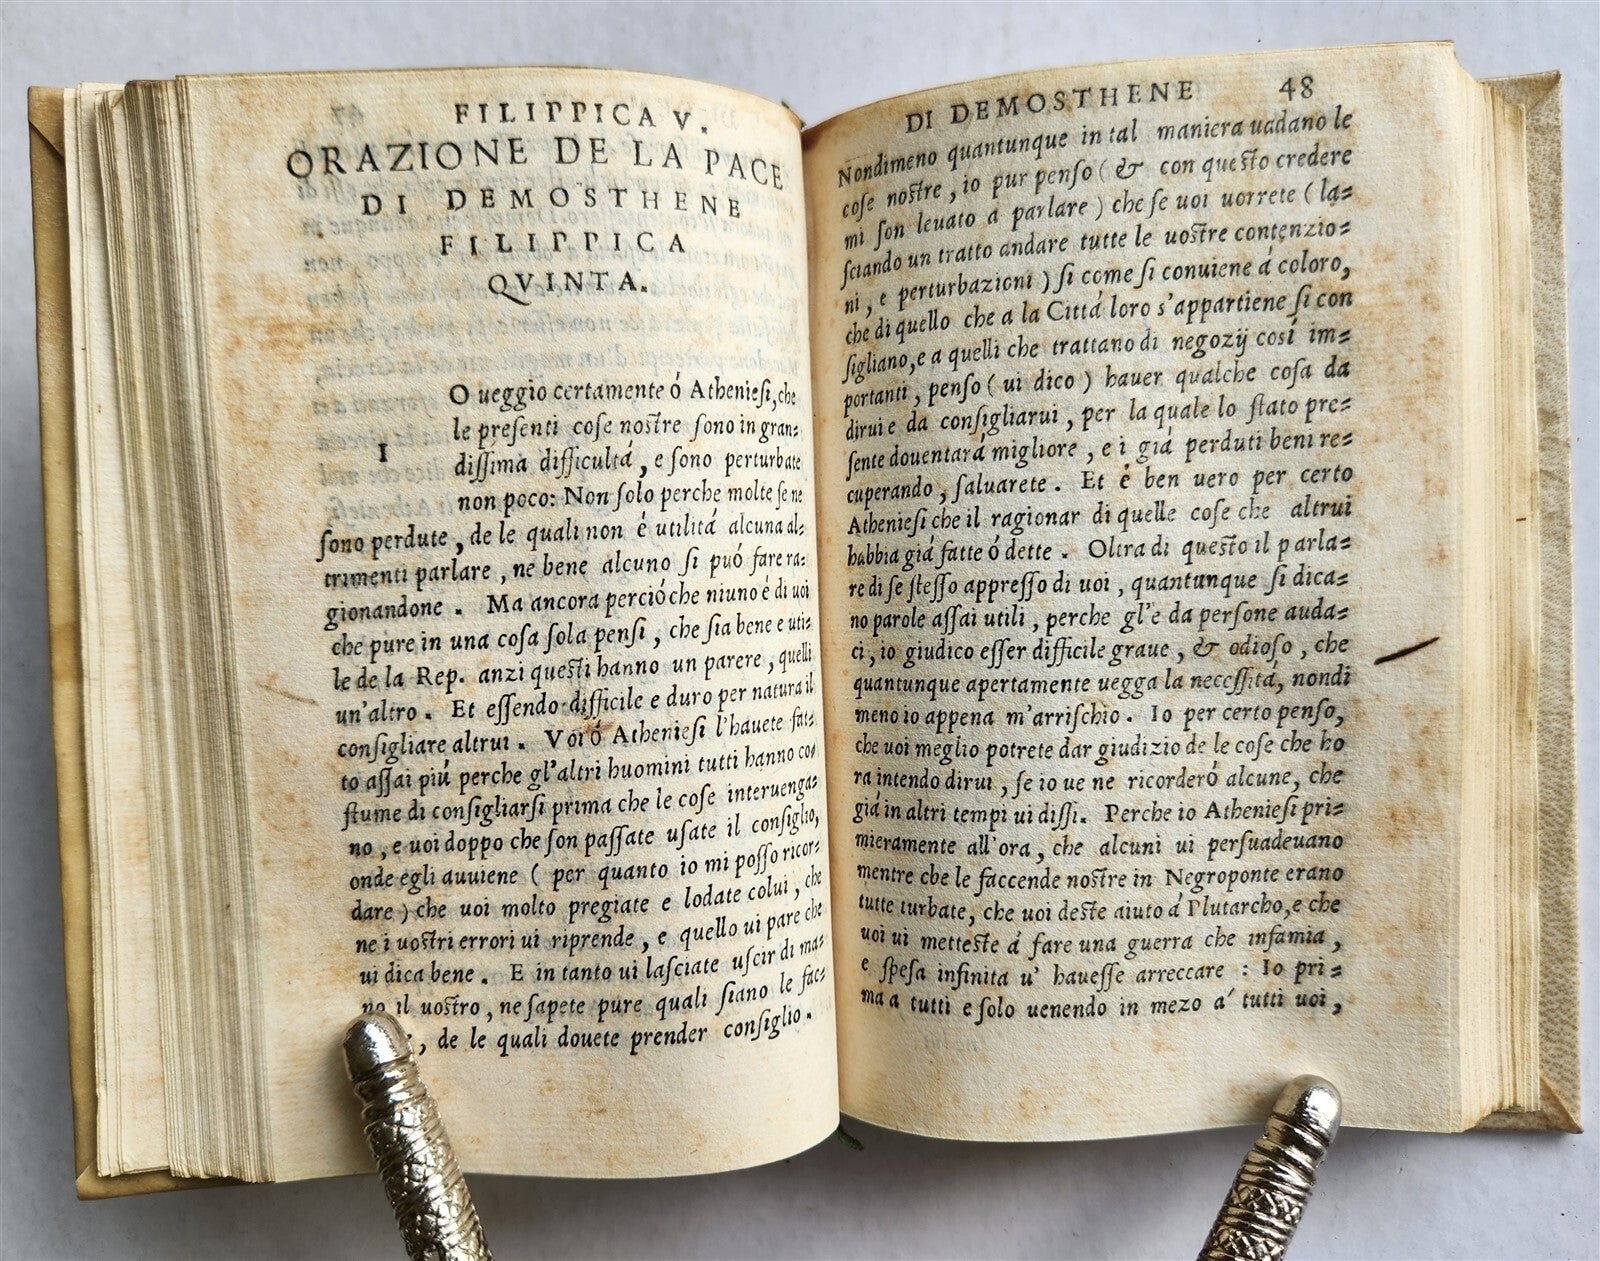 FILIPPICA V.
ORAZIONE DE LA PACE
DI DEMOSTHENE
FILIPPICA
QVINTA.
I
O ueggio certamente ó Atheniesi, che
le presenti cose nostre sono in gran-
dissima difficultá, e sono perturbate
non poco: Non solo perche molte se ne
sono perdute, de le quali non é utilitá alcuna al-
trimenti parlare, ne bene alcuno si puó fare ra-
gionandone. Ma ancora percióche niuno é di uoi
che pure in una cosa sola pensi, che sia bene e uti-
le de la Rep. anzi questi hanno un parere, quelli
un'altro. Et essendo difficile e duro per natura il
consigliare altrui. Voi ó Atheniesi l'hauete fat-
to assai piú perche gl'altri huomini tutti hanno co-
stume di consigliarsi prima che le cose interuenga-
no, e uoi doppo che son passate usate il consiglio,
onde egli auuiene ( per quanto io mi posso ricor-
dare ) che uoi molto pregiate e lodate colui, che
ne i uostri errori ui riprende, e quello ui pare che
ui dica bene. E in tanto ui lasciate uscir di ma-
no il uostro, ne sapete pure quali siano le fac-
, de le quali douete prender consiglio.
DI DEMOSTHENE 48
Nondimeno quantunque in tal maniera uadano le
cose nostre, io pur penso ( & con questo credere
mi son leuato a parlare ) che se uoi uorrete ( la-
sciando un tratto andare tutte le uostre contenzio-
ni, e perturbazioni ) si come si conuiene á coloro,
che di quello che a la Cittá loro s'appartiene si con
sigliano, e a quelli che trattano di negozij cosí im-
portanti, penso ( ui dico ) hauer qualche cosa da
dirui e da consigliarui, per la quale lo stato pre-
sente douentará migliore, e i giá perduti beni re-
cuperando, saluarete. Et é ben uero per certo
Atheniesi che il ragionar di quelle cose che altrui
habbia giá fatte ó dette. Oltra di questo il parla-
re di se stesso appresso di uoi, quantunque si dica-
no parole assai utili, perche gl'é da persone auda-
ci, io giudico esser difficile graue, & odioso, che
quantunque apertamente uegga la necessitá, nondi
meno io appena m'arrischio. Io per certo penso,
che uoi meglio potrete dar giudizio de le cose che ho
ra intendo dirui, se io ue ne ricorderó alcune, che
giá in altri tempi ui dissi. Perche io Atheniesi pri-
mieramente all'ora, che alcuni ui persuadeuano
mentre che le faccende nostre in Negroponte erano
tutte turbate, che uoi deste aiuto á Plutarcho, e che
uoi ui metteste á fare una guerra che infamia,
e spesa infinita u' hauesse arreccare : Io pri-
ma a tutti e solo uenendo in mezo a' tutti uoi,